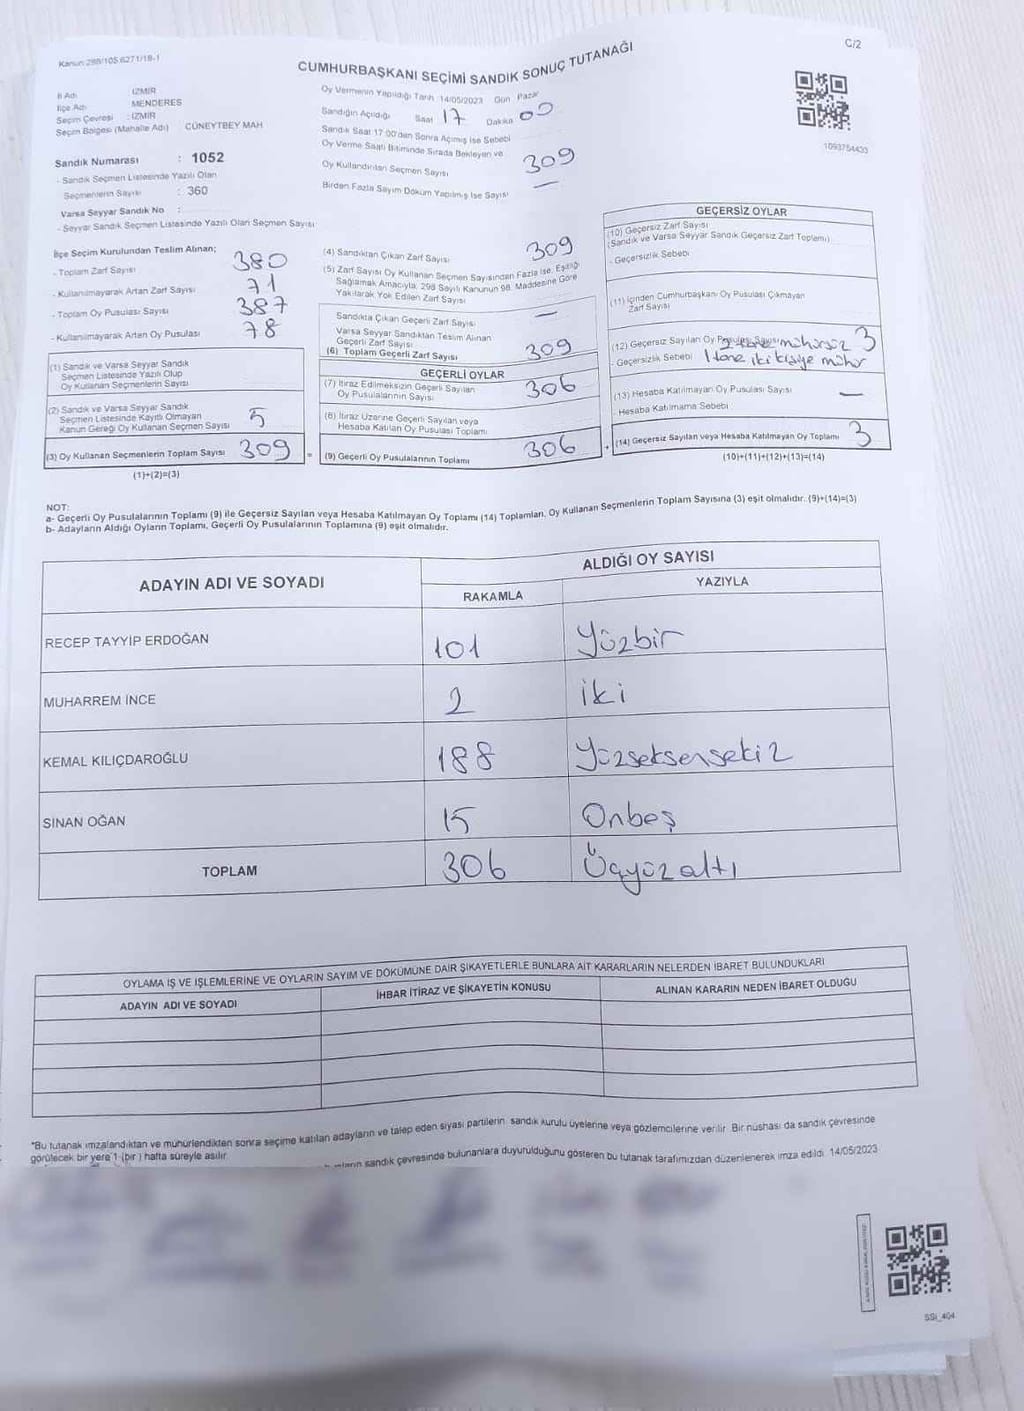 Kanun:298/105 6271/18-1
C/2
CUMHURBAŞKANI SEÇİMİ SANDIK SONUÇ TUTANAĞI
İl Adı : İZMİR
İlçe Adı : MENDERES
Seçim Çevresi : İZMİR
Seçim Bölgesi (Mahalle Adı) CÜNEYTBEY MAH
Sandık Numarası : 1052
- Sandık Seçmen Listesinde Yazılı Olan
Seçmenlerin Sayısı : 360
Varsa Seyyar Sandık No :
- Seyyar Sandık Seçmen Listesinde Yazılı Olan Seçmen Sayısı
Oy Vermenin Yapıldığı Tarih :14/05/2023 Gün Pazar
Sandığın Açıldığı Saat 17 Dakika 00
Sandık Saat 17:00'dan Sonra Açımış İse Sebebi
Oy Verme Saati Bitiminde Sırada Bekleyen ve
Oy Kullandırılan Seçmen Sayısı 309
Birden Fazla Sayım Döküm Yapılmış İse Sayısı —
1093754435
İlçe Seçim Kurulundan Teslim Alınan;
- Toplam Zarf Sayısı 380
- Kullanılmayarak Artan Zarf Sayısı 71
- Toplam Oy Pusulası Sayısı 387
- Kullanılmayarak Artan Oy Pusulası 78
(1) Sandık ve Varsa Seyyar Sandık
Seçmen Listesinde Yazılı Olup
Oy Kullanan Seçmenlerin Sayısı
(2) Sandık ve Varsa Seyyar Sandık
Seçmen Listesinde Kayıtlı Olmayan
Kanun Gereği Oy Kullanan Seçmen Sayısı 5
(3) Oy Kullanan Seçmenlerin Toplam Sayısı 309 =
(1)+(2)=(3)
(4) Sandıktan Çıkan Zarf Sayısı 309
(5) Zarf Sayısı Oy Kullanan Seçmen Sayısından Fazla İse, Eşitliği
Sağlamak Amacıyla, 298 Sayılı Kanunun 98. Maddesine Göre
Yakılarak Yok Edilen Zarf Sayısı
Sandıkta Çıkan Geçerli Zarf Sayısı —
Varsa Seyyar Sandıktan Teslim Alınan
Geçerli Zarf Sayısı
(6) Toplam Geçerli Zarf Sayısı 309
GEÇERLİ OYLAR
(7) İtiraz Edilmeksizin Geçerli Sayılan
Oy Pusulalarının Sayısı 306
(8) İtiraz Üzerine Geçerli Sayılan veya
Hesaba Katılan Oy Pusulası Toplamı
(9) Geçerli Oy Pusulalarının Toplamı 306 +
GEÇERSİZ OYLAR
(10) Geçersiz Zarf Sayısı
(Sandık ve Varsa Seyyar Sandık Geçersiz Zarf Toplamı)
- Geçersizlik Sebebi
(11) İçinden Cumhurbaşkanı Oy Pusulası Çıkmayan
Zarf Sayısı
(12) Geçersiz Sayılan Oy Pusulası Sayısı 2 tane mühürsüz 3
- Geçersizlik Sebebi 1 tane iki kişiye mühür
(13) Hesaba Katılmayan Oy Pusulası Sayısı —
- Hesaba Katılmama Sebebi
(14) Geçersiz Sayılan veya Hesaba Katılmayan Oy Toplamı 3
(10)+(11)+(12)+(13)=(14)
NOT:
a- Geçerli Oy Pusulalarının Toplamı (9) ile Geçersiz Sayılan veya Hesaba Katılmayan Oy Toplamı (14) Toplamları, Oy Kullanan Seçmenlerin Toplam Sayısına (3) eşit olmalıdır. (9)+(14)=(3)
b- Adayların Aldığı Oyların Toplamı, Geçerli Oy Pusulalarının Toplamına (9) eşit olmalıdır.
ADAYIN ADI VE SOYADI
ALDIĞI OY SAYISI
RAKAMLA YAZIYLA
RECEP TAYYİP ERDOĞAN 101 Yüzbir
MUHARREM İNCE 2 iki
KEMAL KILIÇDAROĞLU 188 Yüzseksensekiz
SİNAN OĞAN 15 Onbeş
TOPLAM 306 Üçyüzaltı
OYLAMA İŞ VE İŞLEMLERİNE VE OYLARIN SAYIM VE DÖKÜMÜNE DAİR ŞİKAYETLERLE BUNLARA AİT KARARLARIN NELERDEN İBARET BULUNDUKLARI
ADAYIN ADI VE SOYADI İHBAR İTİRAZ VE ŞİKAYETİN KONUSU ALINAN KARARIN NEDEN İBARET OLDUĞU
*Bu tutanak imzalandıktan ve mühürlendikten sonra seçime katılan adayların ve talep eden siyasi partilerin sandık kurulu üyelerine veya gözlemcilerine verilir. Bir nüshası da sandık çevresinde
görülecek bir yere 1 (bir ) hafta süreyle asılır.
sandık çevresinde bulunanlara duyurulduğunu gösteren bu tutanak tarafımızdan düzenlenerek imza edildi. 14/05/2023
SSİ_404